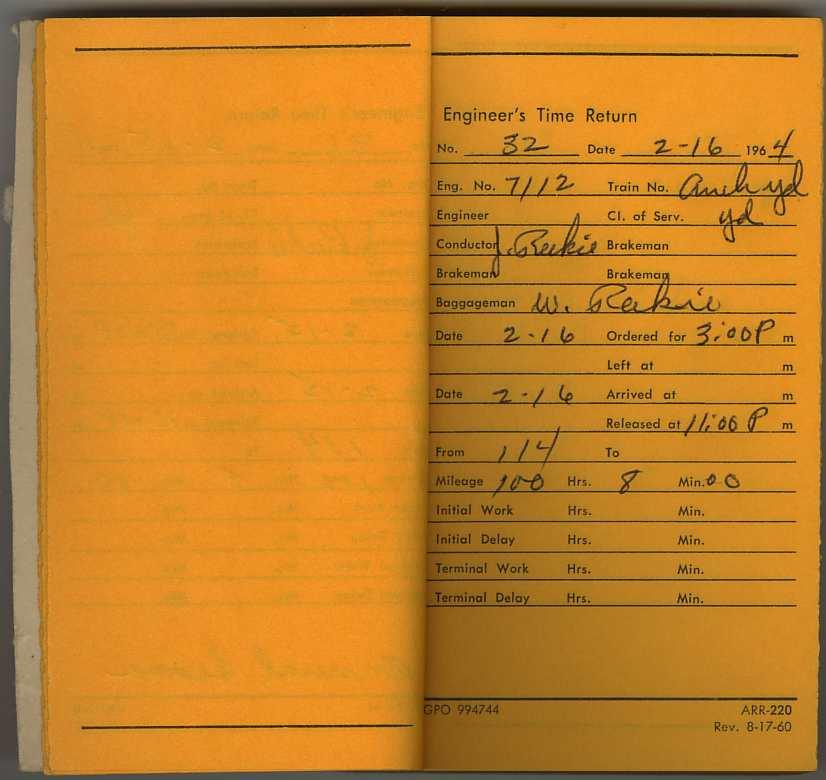 Engineer's Time Return
No. 32 Date 2-16 1964
Eng. No. 7112 Train No. Anch yd
Engineer Cl. of Serv. yd
Conductor J. Rekie Brakeman
Brakeman Brakeman
Baggageman W. Rekie
Date 2-16 Ordered for 3:00P m
Left at m
Date 2-16 Arrived at m
Released at 11:00 P m
From 114 To
Mileage 100 Hrs. 8 Min. 00
Initial Work Hrs. Min.
Initial Delay Hrs. Min.
Terminal Work Hrs. Min.
Terminal Delay Hrs. Min.
GPO 994744 ARR-220
Rev. 8-17-60